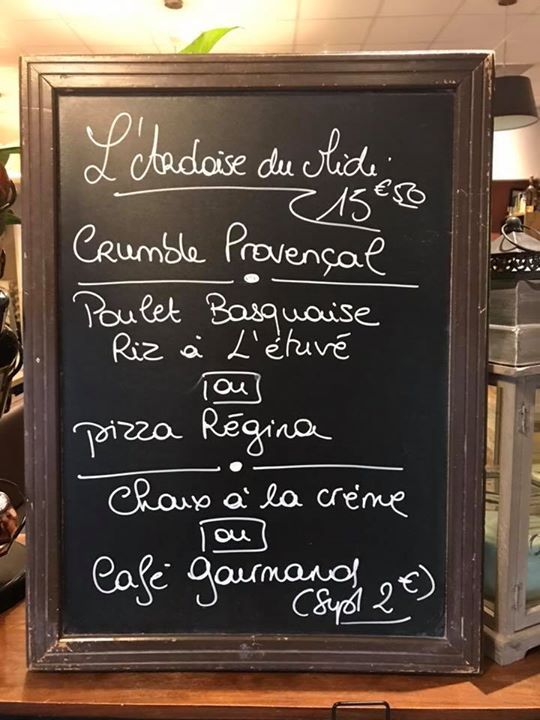 L'Ardoise du Midi
15€50
Crumble Provençal
Poulet Basquaise
Riz à L'étuvé
ou
pizza Régina
Choux à la crème
ou
Café gourmand
(Supl 2€)